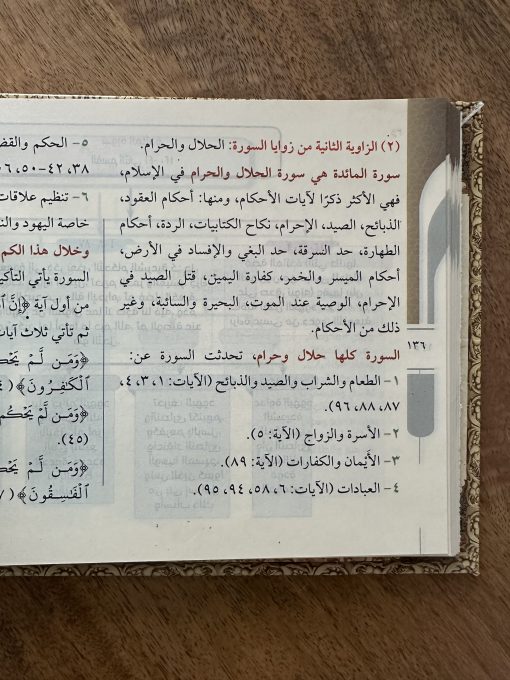 (٢) الزاوية الثانية من زوايا السورة: الحلال والحرام.
سورة المائدة هي سورة الحلال والحرام في الإسلام،
فهي الأكثر ذكرًا لآيات الأحكام، ومنها: أحكام العقود،
الذبائح، الصيد، الإحرام، نكاح الكتابيات، الردة، أحكام
الطهارة، حد السرقة، حد البغي والإفساد في الأرض،
أحكام الميسر والخمر، كفارة اليمين، قتل الصيد في
الإحرام، الوصية عند الموت، البحيرة والسائبة، وغير
ذلك من الأحكام.
السورة كلها حلال وحرام، تحدثت السورة عن:
١- الطعام والشراب والصيد والذبائح (الآيات: ١، ٣، ٤،
٨٧، ٨٨، ٩٦).
٢- الأسرة والزواج (الآية: ٥).
٣- الأَيْمان والكفارات (الآية: ٨٩).
٤- العبادات (الآيات: ٦، ٥٨، ٩٤، ٩٥).
١٣٦
٥- الحكم والقض
٣٨، ٤٢-٥٠،
٦- تنظيم علاقات
خاصة اليهود والن
وخلال هذا الكم
السورة يأتي التأكي
من أول آية ﴿إِنَّ
ثم تأتي ثلاث آيات
﴿وَمَن لَّمْ يَحْكُ
ٱلْكَـٰفِرُونَ﴾
﴿وَمَن لَّمْ يَحْكُم
(٤٥).
﴿وَمَن لَّمْ يَحْكُ
ٱلْفَـٰسِقُونَ﴾